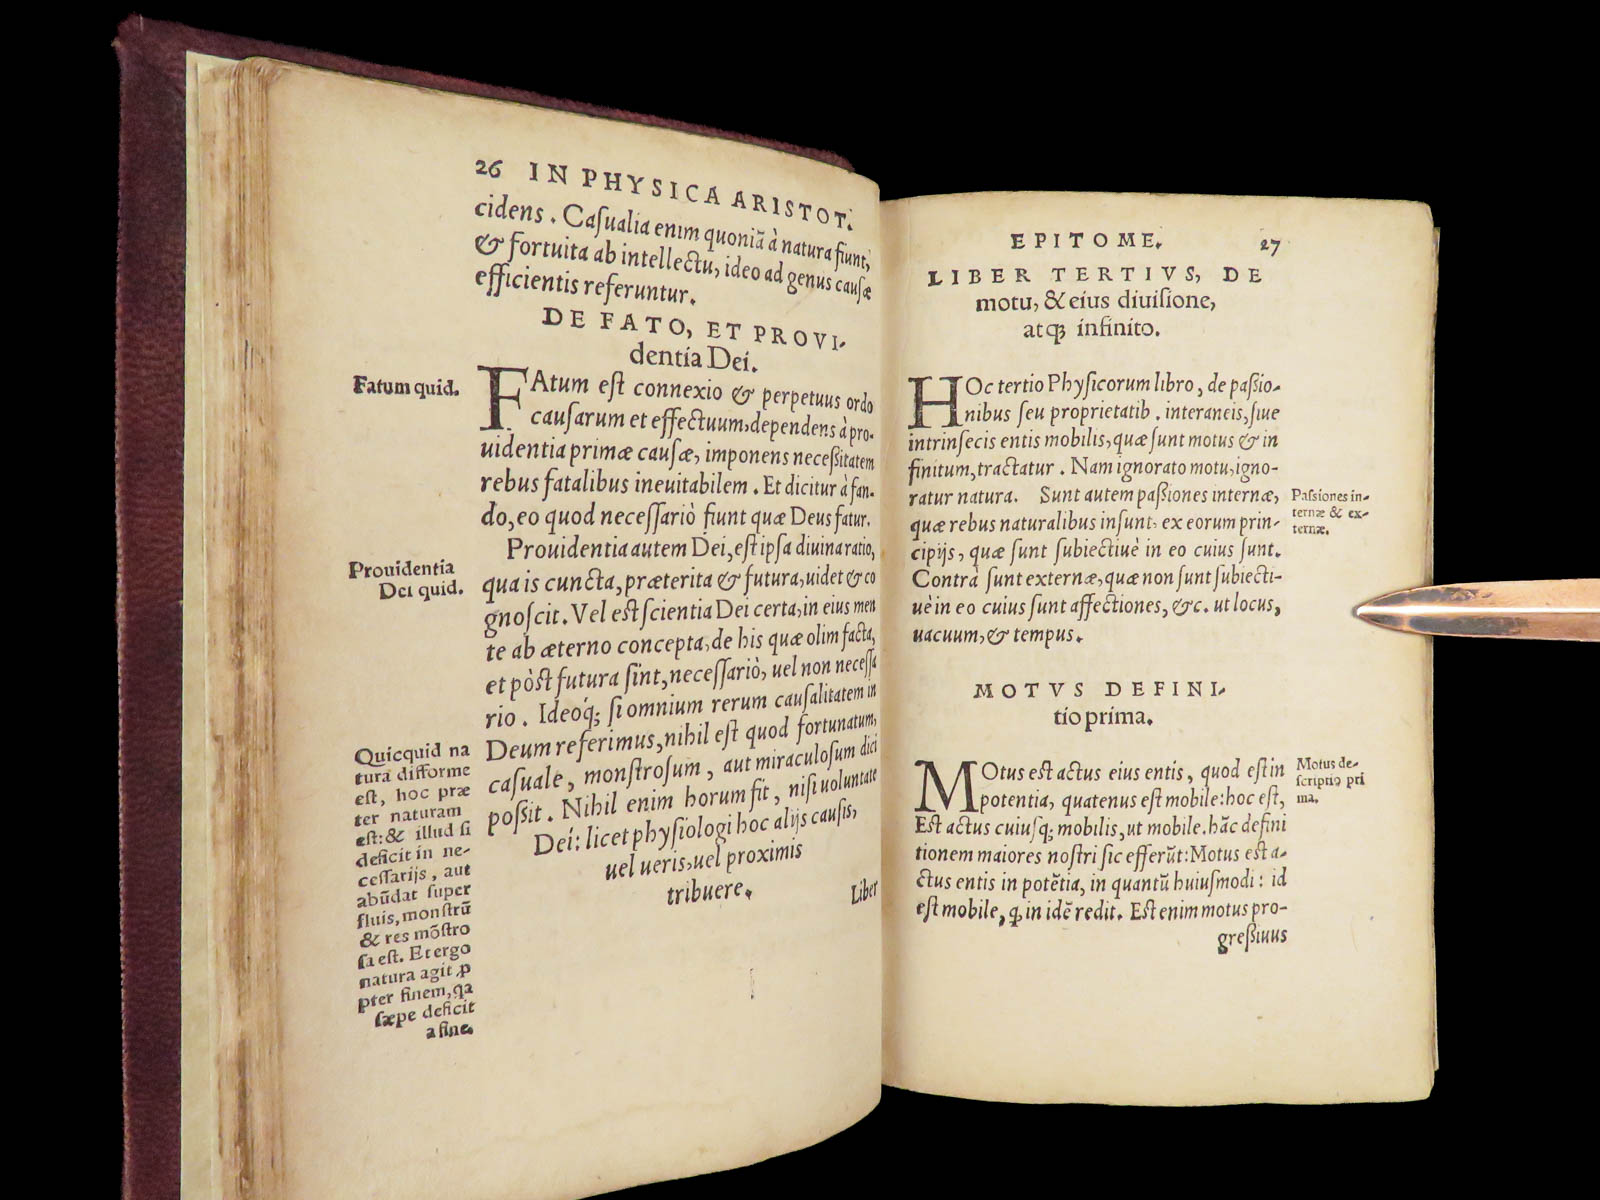 26 IN PHYSICA ARISTOT.
cidens. Caſualia enim quoniã à natura fiunt,
& fortuita ab intellectu, ideo ad genus cauſæ
efficientis referuntur.
DE FATO, ET PROVI-
dentia Dei.
Fatum quid.
FAtum eſt connexio & perpetuus ordo
cauſarum et effectuum, dependens à pro-
uidentia primæ cauſæ, imponens neceſsitatem
rebus fatalibus ineuitabilem. Et dicitur à fan-
do, eo quod neceſſariò fiunt quæ Deus fatur.
Prouidentia
Dei quid.
Prouidentia autem Dei, eſt ipſa diuina ratio,
qua is cuncta, præterita & futura, uidet & co
gnoſcit. Vel eſt ſcientia Dei certa, in eius men
te ab æterno concepta, de his quæ olim facta,
et pòst futura ſint, neceſſariò, uel non neceſſa
rio. Ideoq́; ſi omnium rerum cauſalitatem in
Deum referimus, nihil eſt quod fortunatum,
caſuale, monſtroſum, aut miraculoſum dici
poſsit. Nihil enim horum fit, niſi uoluntate
Dei: licet phyſiologi hoc alijs cauſis,
uel ueris, uel proximis
tribuere.
Quicquid na
tura difforme
eſt, hoc præ
ter naturam
eſt: & illud ſi
deficit in ne-
ceſſarijs, aut
abũdat ſuper
fluis, monſtrũ
& res mõſtro
ſa eſt. Et ergo
natura agit ꝓ
pter finem, qa
ſæpe deficit
a fine.
Liber
EPITOME. 27
LIBER TERTIVS, DE
motu, & eius diuiſione,
atqꝫ infinito.
HOc tertio Phyſicorum libro, de paſsio-
nibus ſeu proprietatib. interaneis, ſiue
intrinſecis entis mobilis, quæ ſunt motus & in
finitum, tractatur. Nam ignorato motu, igno-
ratur natura. Sunt autem paſsiones internæ,
quæ rebus naturalibus inſunt, ex eorum prin-
cipijs, quæ ſunt ſubiectiuè in eo cuius ſunt.
Contrà ſunt externæ, quæ non ſunt ſubiecti-
uè in eo cuius ſunt affectiones, &c. ut locus,
uacuum, & tempus.
Paſsiones in-
ternæ & ex-
ternæ.
MOTVS DEFINI-
tio prima.
MOtus est actus eius entis, quod eſt in
potentia, quatenus eſt mobile: hoc eſt,
Eſt actus cuiuſq; mobilis, ut mobile. hãc defini
tionem maiores noſtri ſic efferũt: Motus eſt a-
ctus entis in potẽtia, in quantũ huiuſmodi: id
eſt mobile, ꝙ in idẽ redit. Eſt enim motus pro-
Motus de-
ſcriptio pri
ma.
greſsiuus